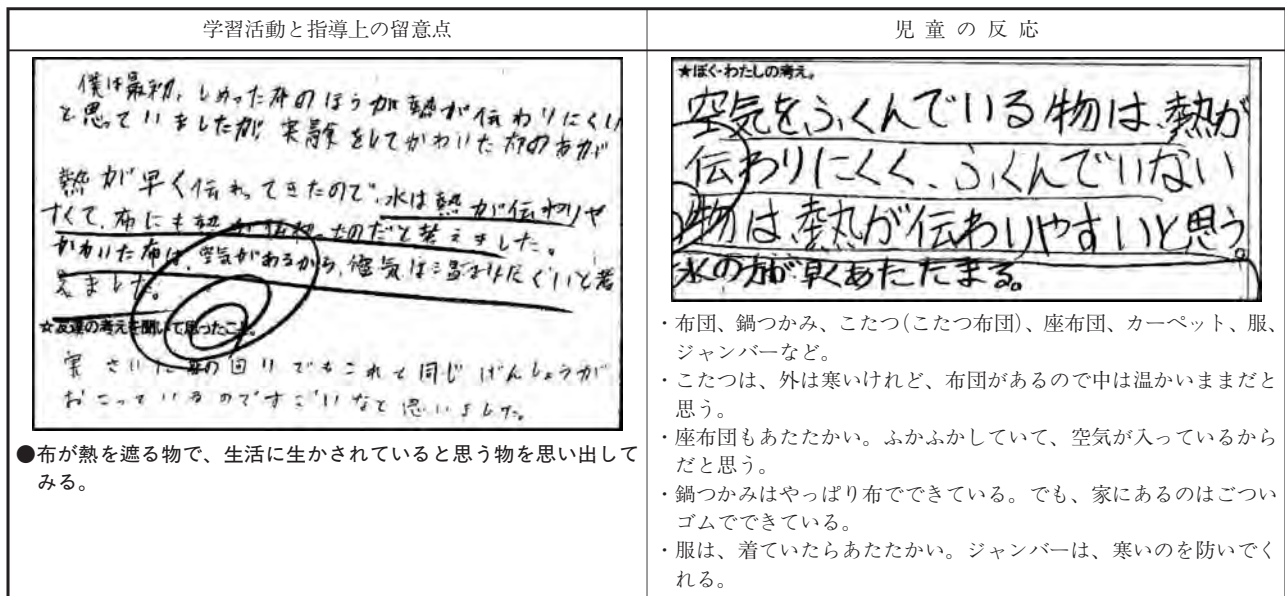 学習活動と指導上の留意点
僕は最初、しめった布のほうが熱が伝わりにくい
と思っていましたが、実験をしてかわいた布の方が
熱が早く伝わってきたので、水は熱が伝わりや
すくて、布にも熱が伝わったのだと考えました。
かわいた布は、空気があるから、空気は温まりにくいと考
えました。
☆友達の考えを聞いて思ったこと。
実さいに身の回りでもこれと同じげんしょうが
おこっているのですごいなと思いました。
●布が熱を遮る物で、生活に生かされていると思う物を思い出して
みる。
児童の反応
★ぼく・わたしの考え。
空気をふくんでいる物は、熱が
伝わりにくく、ふくんでいない
物は、熱が伝わりやすいと思う。
水の方が早くあたたまる。
・布団、鍋つかみ、こたつ(こたつ布団)、座布団、カーペット、服、
ジャンバーなど。
・こたつは、外は寒いけれど、布団があるので中は温かいままだと
思う。
・座布団もあたたかい。ふかふかしていて、空気が入っているから
だと思う。
・鍋つかみはやっぱり布でできている。でも、家にあるのはごつい
ゴムでできている。
・服は、着ていたらあたたかい。ジャンバーは、寒いのを防いでく
れる。